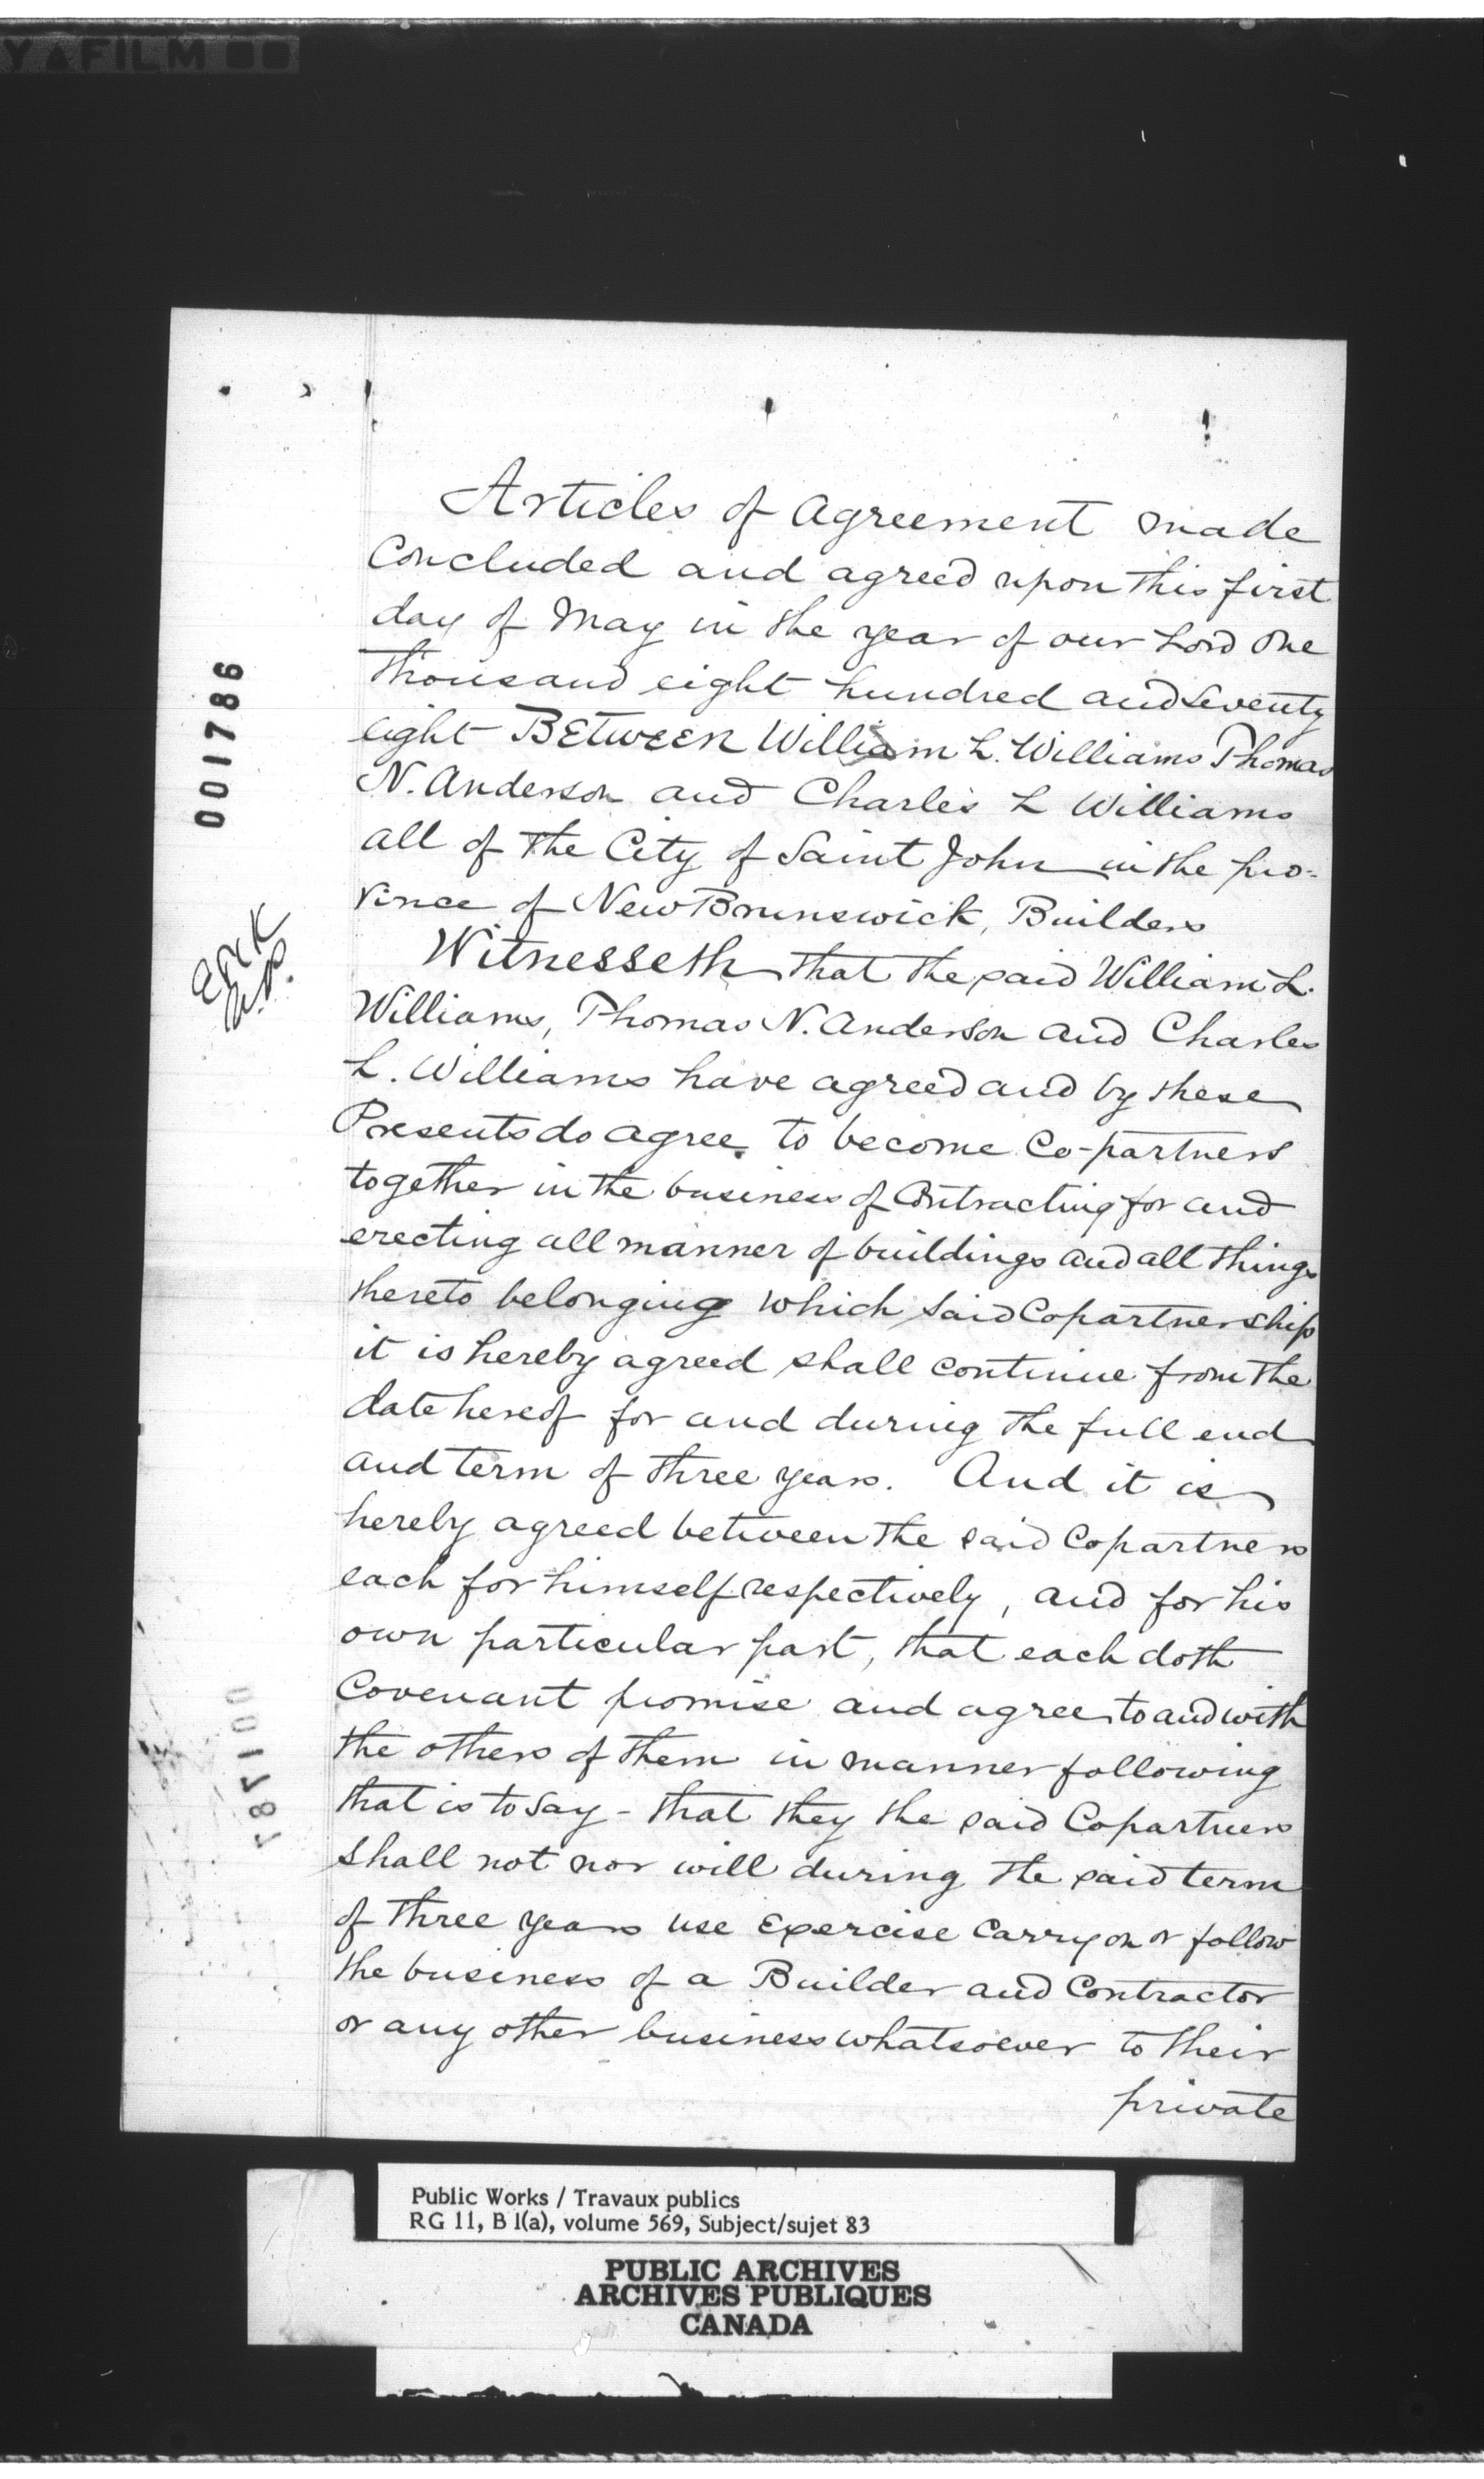 Y▲FILM
Articles of Agreement made
Concluded and agreed upon this first
day of May in the year of our Lord One
thousand eight hundred and Seventy
eight BETWEEN William L. Williams Thomas
N. Anderson and Charles L Williams
all of the City of Saint John in the pro-
vince of New Brunswick, Builders
Witnesseth that the said William L.
Williams, Thomas N. Anderson and Charles
L. Williams have agreed and by these
Presents do agree to become Co-partners
together in the business of Contracting for and
erecting all manner of buildings and all things
thereto belonging which said Copartnership
it is hereby agreed shall continue from the
date hereof for and during the full end
and term of three years. And it is
hereby agreed between the said Copartners
each for himself respectively, and for his
own particular part, that each doth
Covenant promise and agree to and with
the others of them in manner following
that is to say - that they the said Copartners
shall not nor will during the said term
of three years use Exercise Carry on or follow
the business of a Builder and Contractor
or any other business whatsoever to their
private
001786
001787
Public Works / Travaux publics
RG 11, B 1(a), volume 569, Subject/sujet 83
PUBLIC ARCHIVES
ARCHIVES PUBLIQUES
CANADA